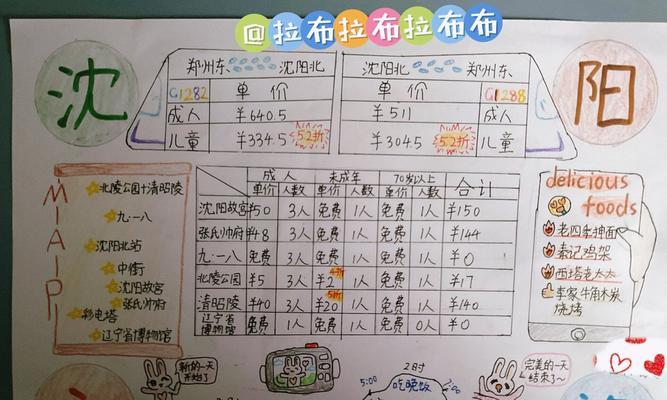 @拉布拉布拉布布
沈
阳
郑州东 沈阳北
G1282 单价
成人 ¥640.5
儿童 ¥334.5 5.2折
沈阳北 郑州东
单价 G1288
¥511 成人
¥304.5 5.2折 儿童
MAP
北陵公园+清昭陵
九·一八
沈阳北站
中街
沈阳故宫
张氏帅府
彩电塔
辽宁省博物馆
成人 未成年 70岁以上 合计
单价 人数 单价 人数 单价 人数
沈阳故宫 ¥50 3人 免费 1人 免费 1人 ¥150
张氏帅府 ¥48 3人 免费 1人 免费 1人 ¥144
九·一八 免费 3人 免费 1人 免费 1人 ¥0
北陵公园 ¥5 3人 4折 ¥2 1人 免费 1人 ¥17
清昭陵 ¥40 3人 5折 ¥20 1人 免费 1人 ¥140
辽宁省博物馆 免费 1人 免费 1人 免费 0人 ¥0
delicious
foods
老四季抻面
秦记鸡架
西塔老太太
李家牛角木炭
烧烤
新的一天
开始了
5:00
2时
吃晚饭
7:00
完美的一天
结束了~